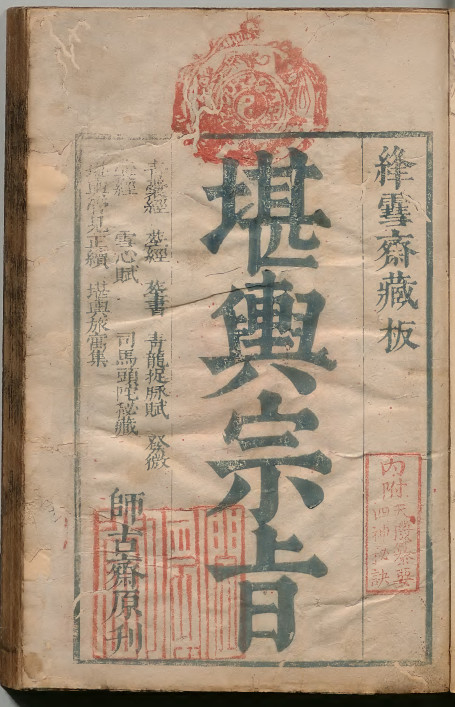 絳雪齋藏板
內附天
四神秘訣
堪輿宗旨
青囊經 葬經 葬書 青龍捉脉賦 發微
經 雪心賦 司馬頭陀秘藏
堪輿管見正續 堪輿旅寓集
師古齋原刋